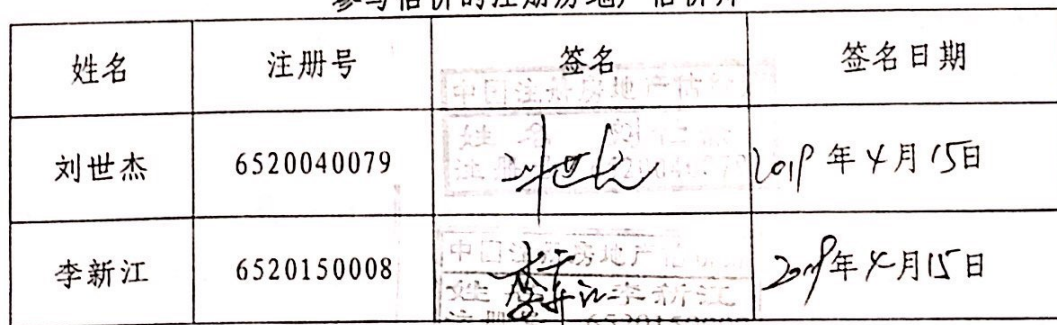 参与估价的注册房地产估价师
姓名 注册号 签名 签名日期
刘世杰 6520040079 刘世杰 2019年4月15日
李新江 6520150008 李新江 2019年4月15日